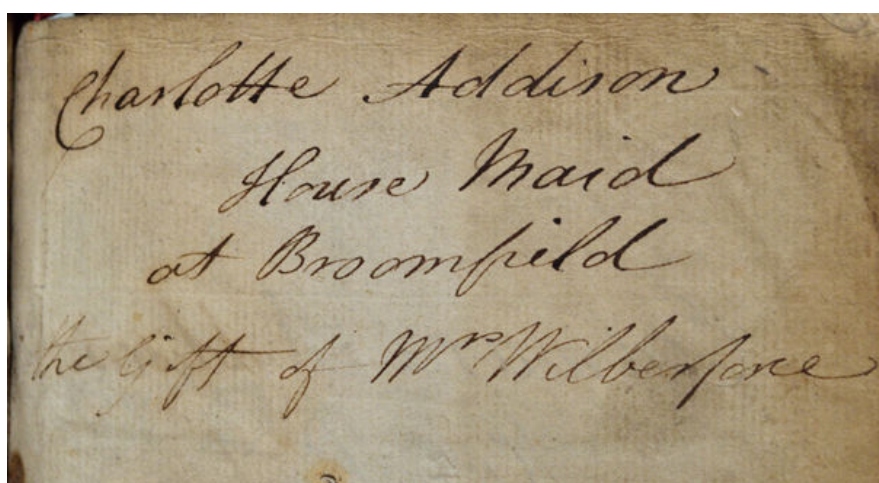 Charlotte Addison
House Maid
at Broomfield
the Gift of Mrs Wilberforce